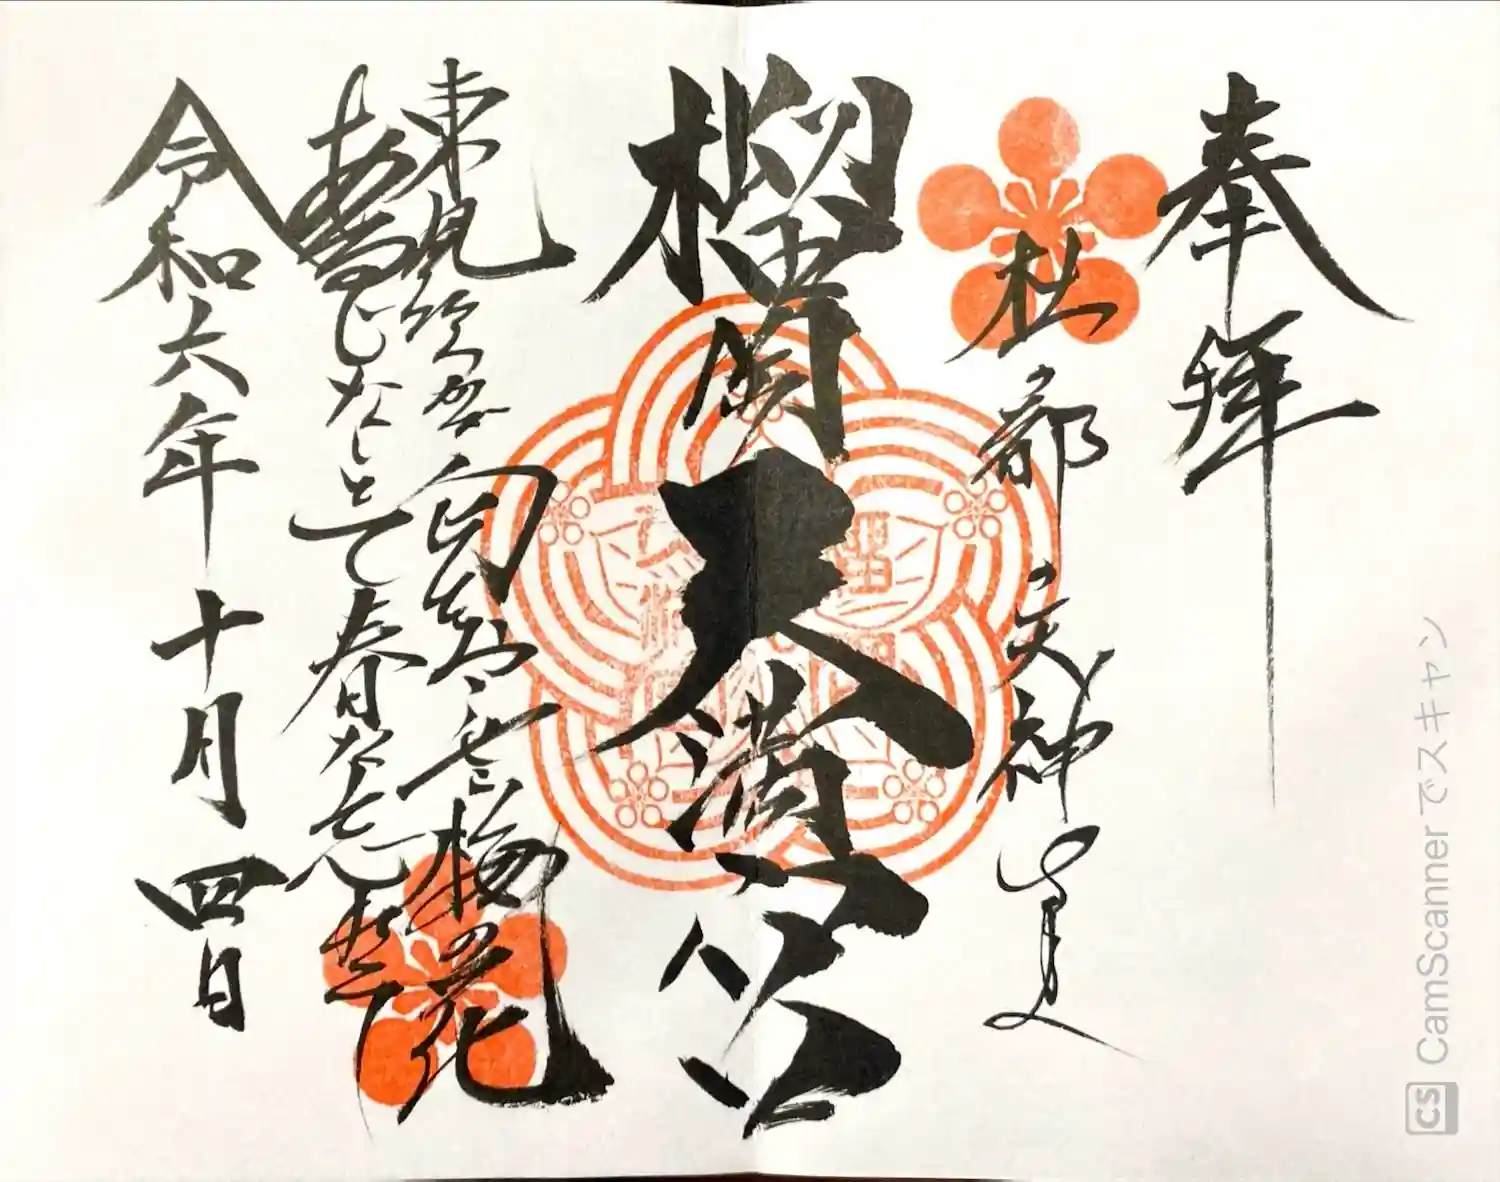 奉拝
杜ノ都ノ天神
榴岡天満宮
東風吹かば匂ひおこせよ梅の花
あるじなしとて春な忘れそ
令和六年十月四日
CS CamScannerでスキャン